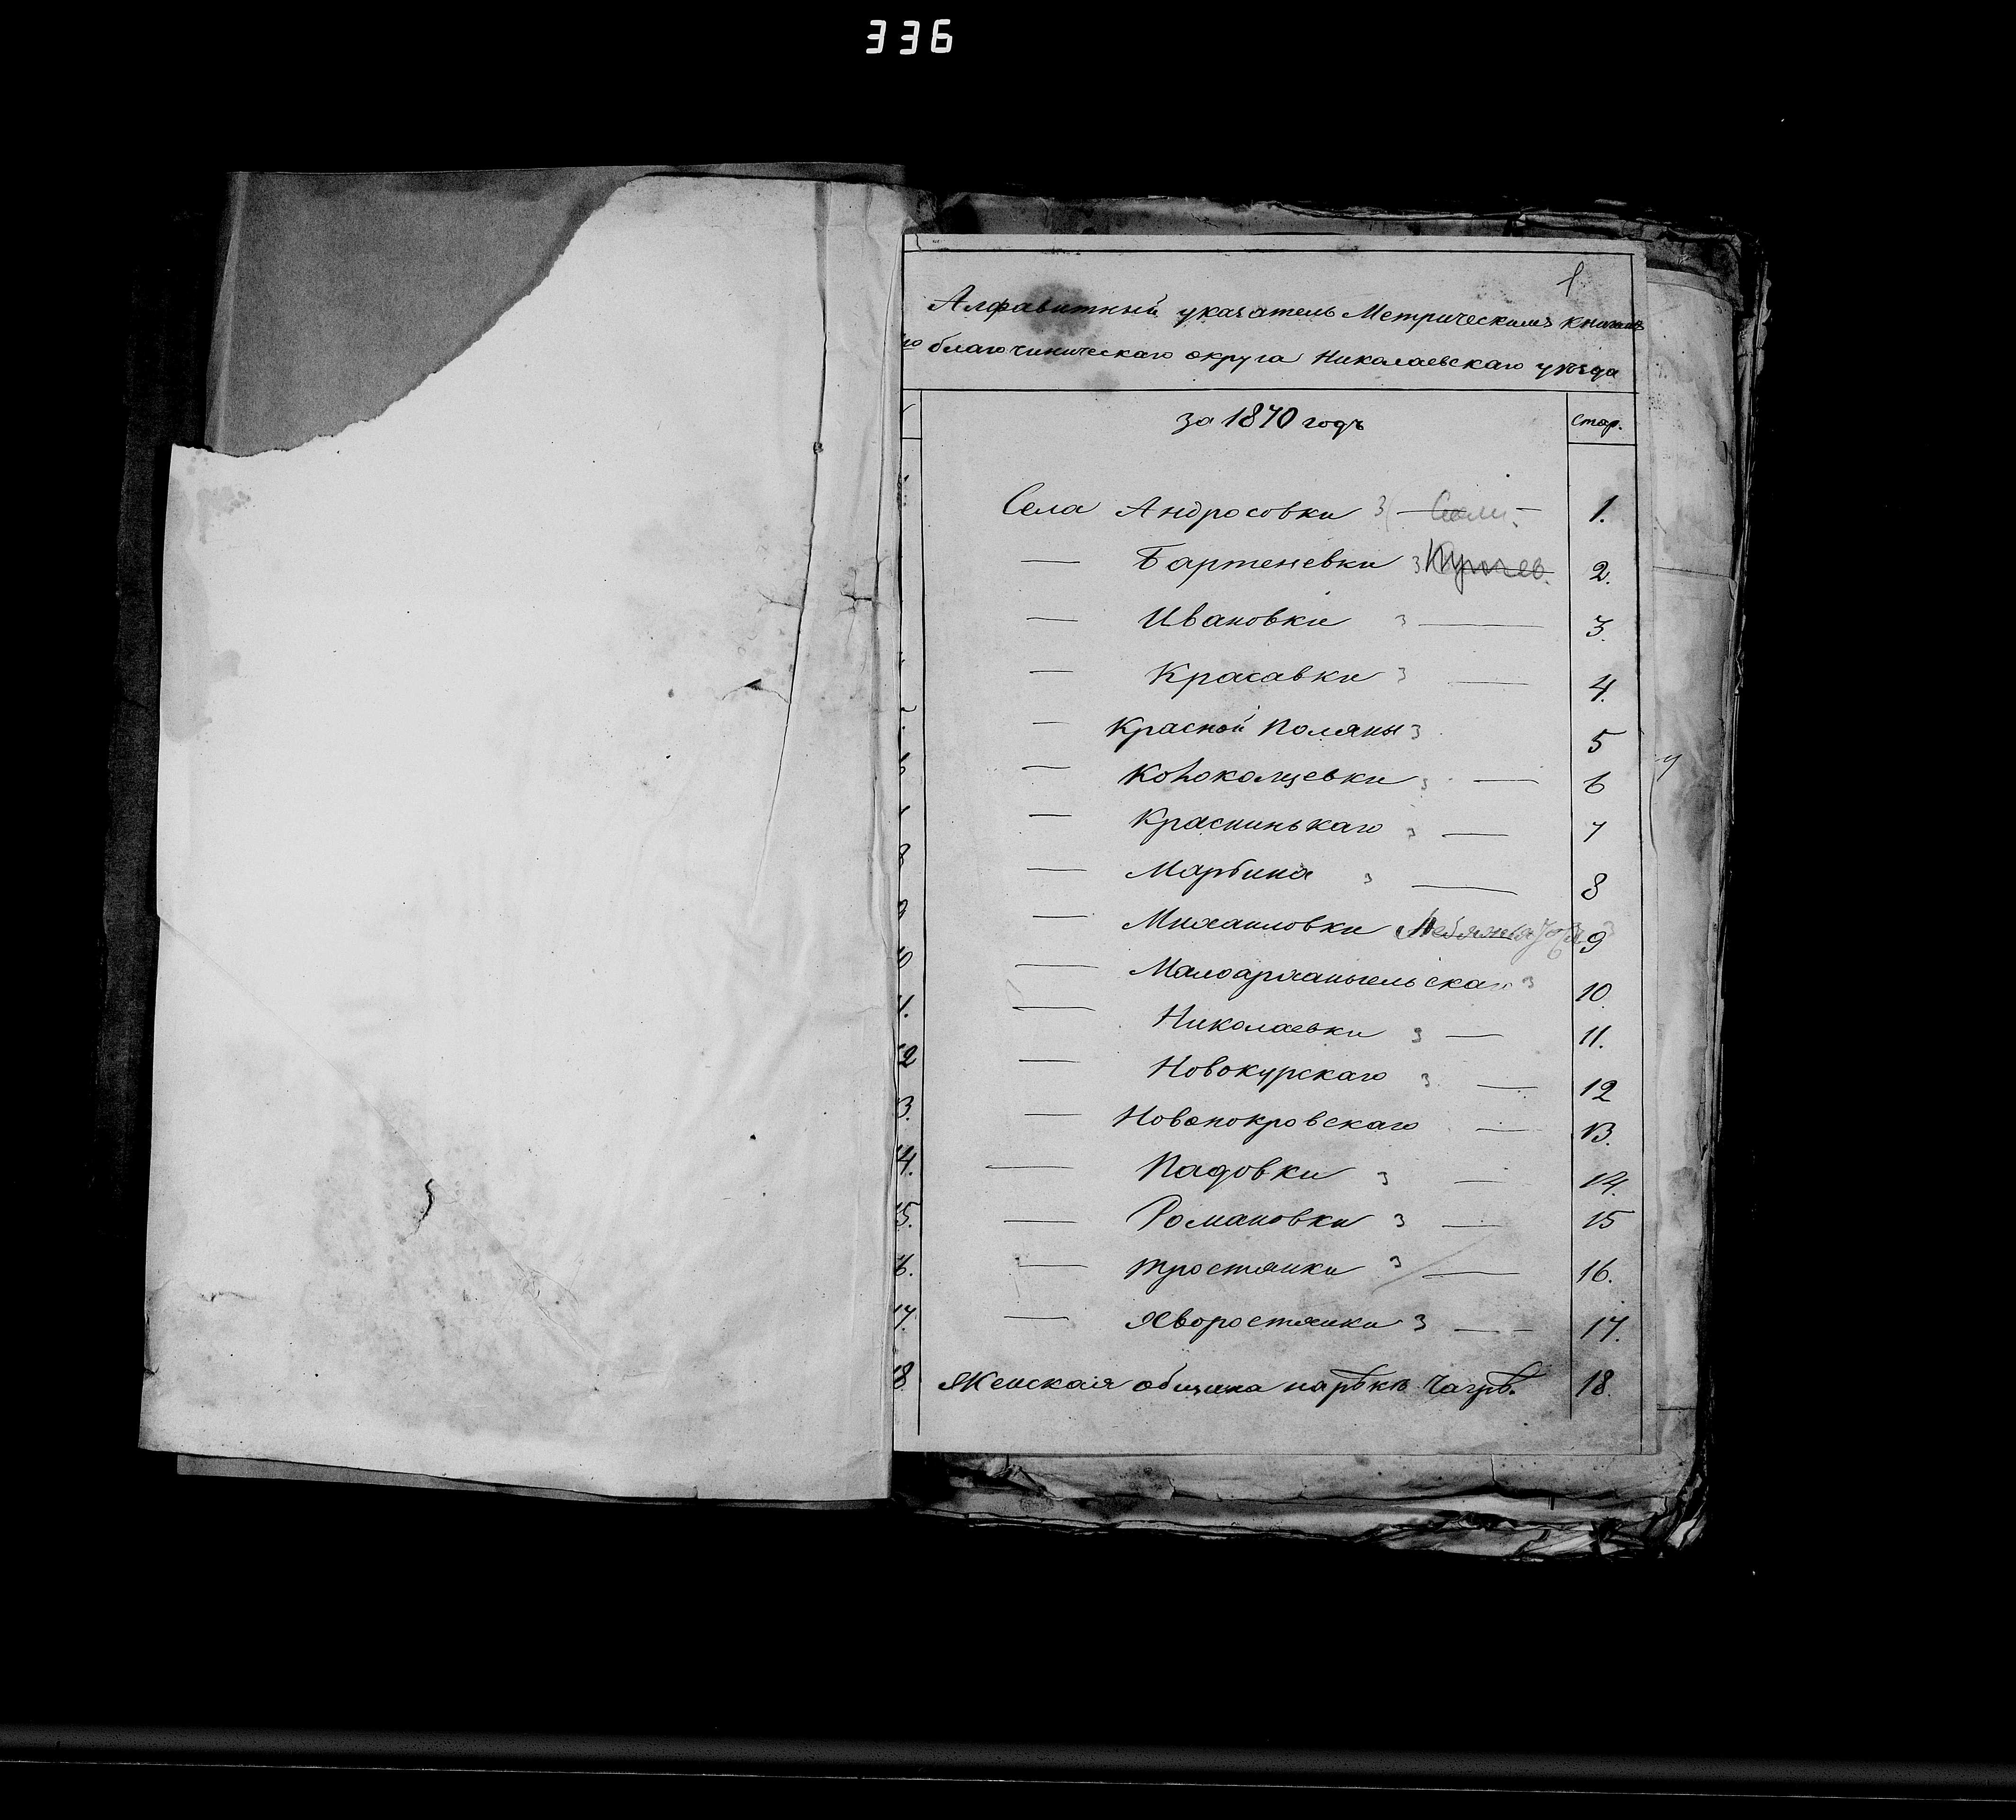 336
1
Алфавитный указатель Метрическимъ книгамъ
го благочинническаго округа Николаевскаго уѣзда
за 1870 годъ Стор.
Села Андросовки 3 1.
— Бартеневки 3 2.
— Ивановки 3 — 3.
— Красавки 3 — 4.
— Красной Поляны 3 5
— Колокольцевки 3 — 6
— Краснинькаго 3 — 7
8 — Марьина 3 — 8
9 — Михаиловки Лебяжья 9
10 — Малоархангельскаго 3 10
— Николаевки 3 — 11.
12 — Новокурскаго 3 — 12
13. — Новопокровскаго — 13.
14. — Падовки 3 — 14.
15. — Романовки 3 — 15
16. — Тростянки 3 — 16.
17. — Хворостянки 3 — 17.
18 Женская община на рѣкѣ Чагрѣ. 18